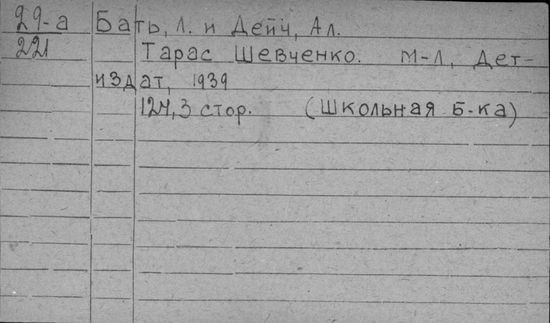 29-а Бать, Л. и Дейч, Ал.
221 Тарас Шевченко. М-Л, Дет-
издат, 1939
124,3 стор. (Школьная Б-ка)